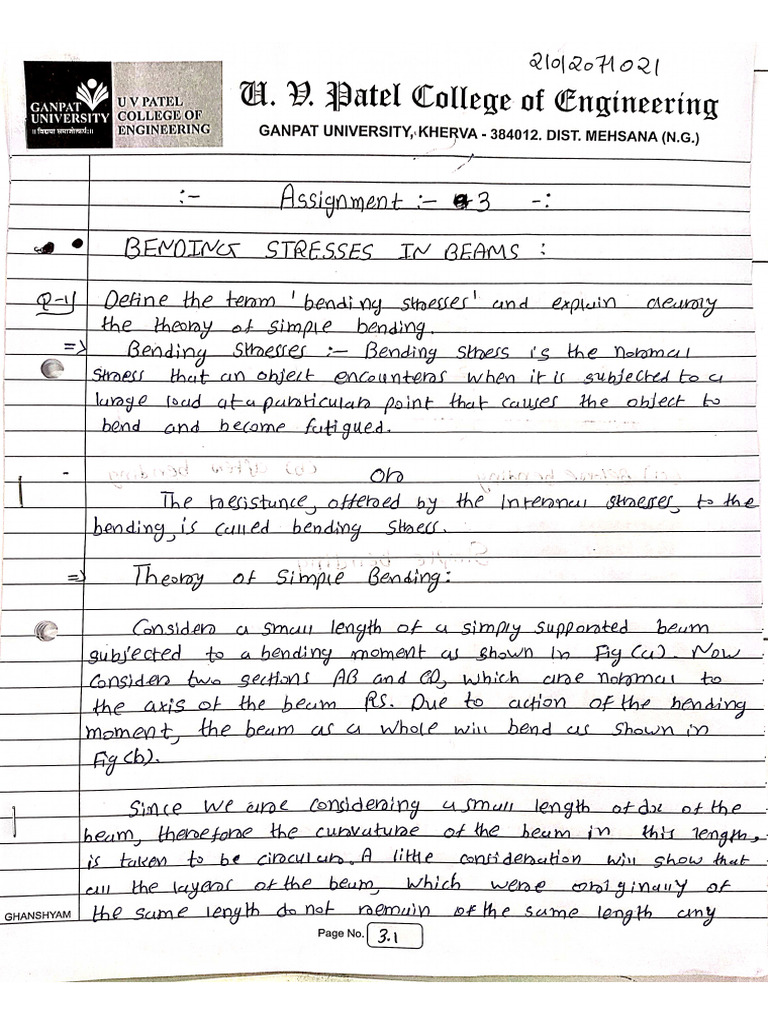 21012071021
GANPAT
UNIVERSITY
॥ विद्यया समाजोत्कर्षः ॥
U V PATEL
COLLEGE OF
ENGINEERING
U. V. Patel College of Engineering
GANPAT UNIVERSITY, KHERVA - 384012. DIST. MEHSANA (N.G.)
:- Assignment :- 3 -:
• BENDING STRESSES IN BEAMS :
Q-1) Define the term 'bending stresses' and explain clearly
the theory of simple bending.
=> Bending Stresses :- Bending stress is the normal
stress that an object encounters when it is subjected to a
large load at a particular point that causes the object to
bend and become fatigued.
or
The resistance, offered by the internal stresses, to the
bending, is called bending stress.
=> Theory of Simple Bending:
Consider a small length of a simply supported beam
subjected to a bending moment as shown in Fig (a). Now
consider two sections AB and CD, which are normal to
the axis of the beam RS. Due to action of the bending
moment, the beam as a whole will bend as shown in
Fig (b).
Since we are considering a small length of dx of the
beam, therefore the curvature of the beam in this length,
is taken to be circular. A little consideration will show that
all the layers of the beam, which were originally of
the same length do not remain of the same length any
GHANSHYAM
Page No. 3.1